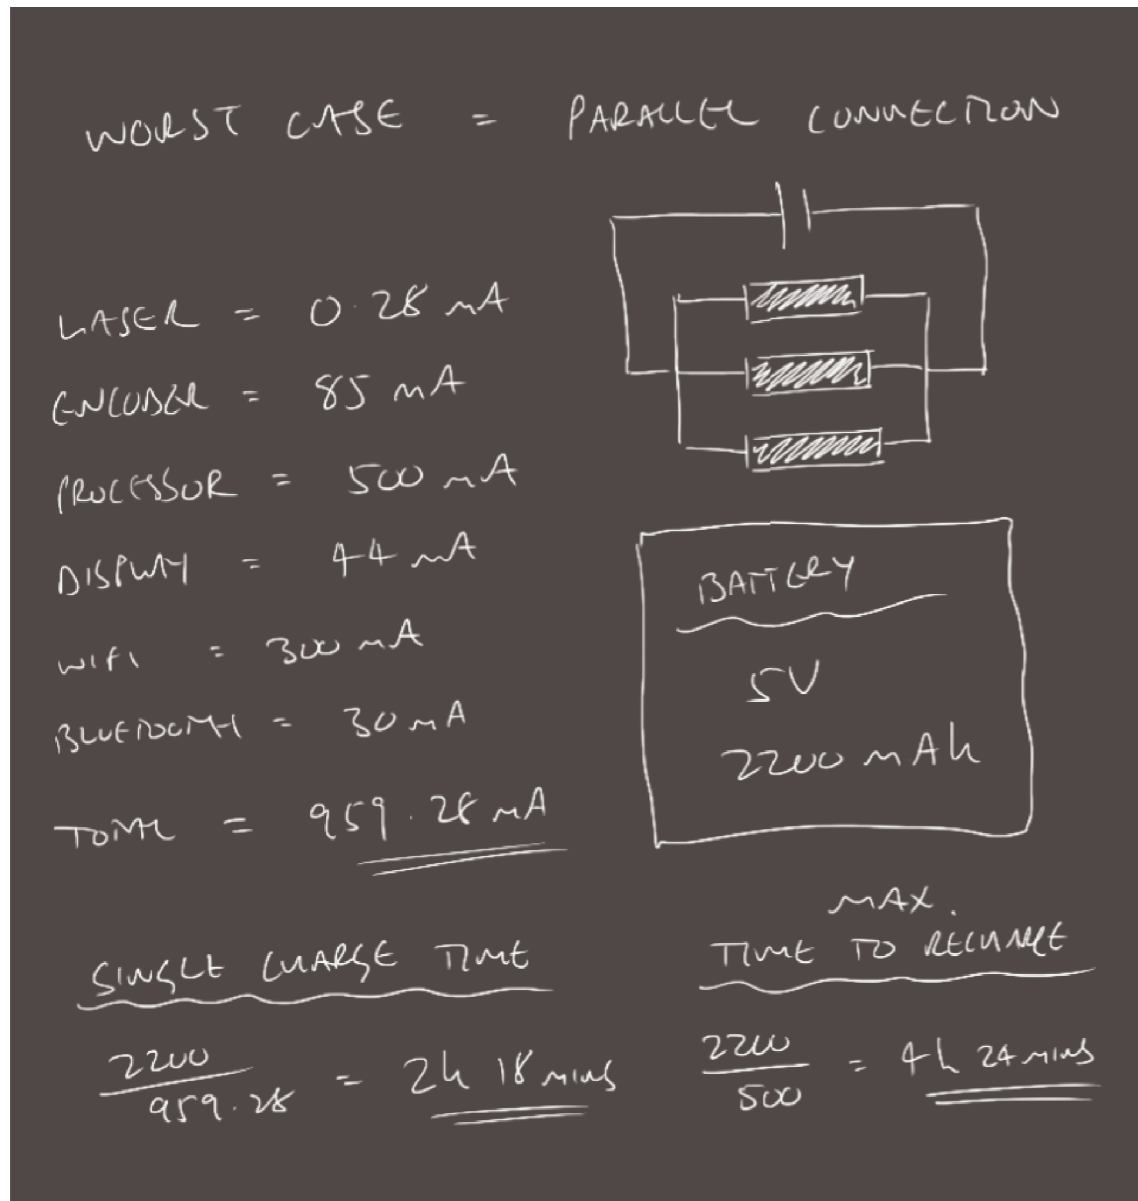 WORST CASE = PARALLEL CONNECTION
LASER = 0.28 mA
ENCODER = 85 mA
PROCESSOR = 500 mA
DISPLAY = 44 mA
WIFI = 300 mA
BLUETOOTH = 30 mA
TOTAL = 959.28 mA
BATTERY
5V
2200 mAh
SINGLE CHARGE TIME
2200
959.28
= 2h 18 mins
MAX.
TIME TO RECHARGE
2200
500
= 4h 24 mins